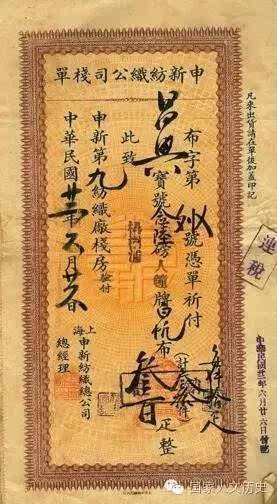 申新紡織公司棧單
凡來出貨請在單後加蓋印記
布字第 號憑單祈付
昌興寶號念陸磅人鐘牌帆布叁百疋整
此致
申新第九紡織廠棧房照付
中華民國廿二年六月廿六日
上海申新紡織總公司
總經理
連稅
中華民國廿二年六月廿六日
国家人文历史